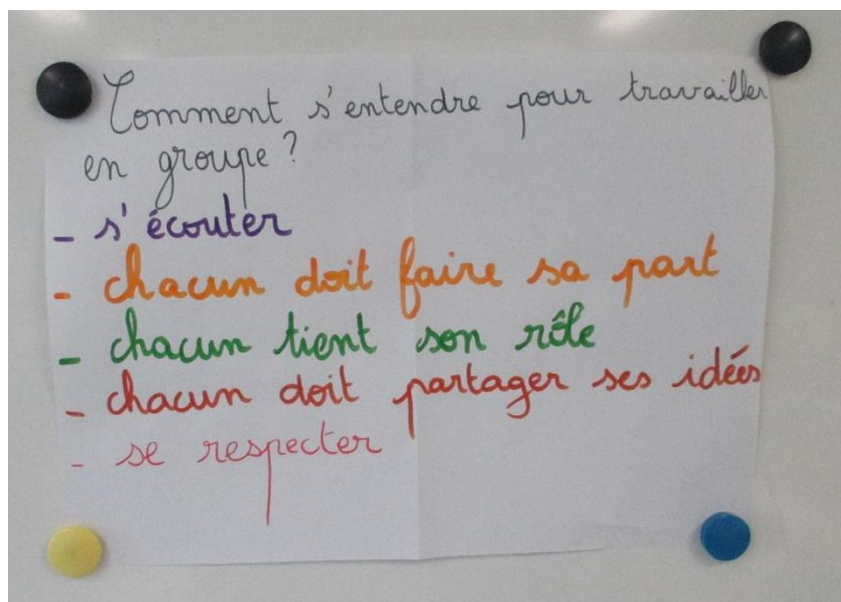 Comment s'entendre pour travailler
en groupe ?
- s'écouter
- chacun doit faire sa part
- chacun tient son rôle
- chacun doit partager ses idées
- se respecter